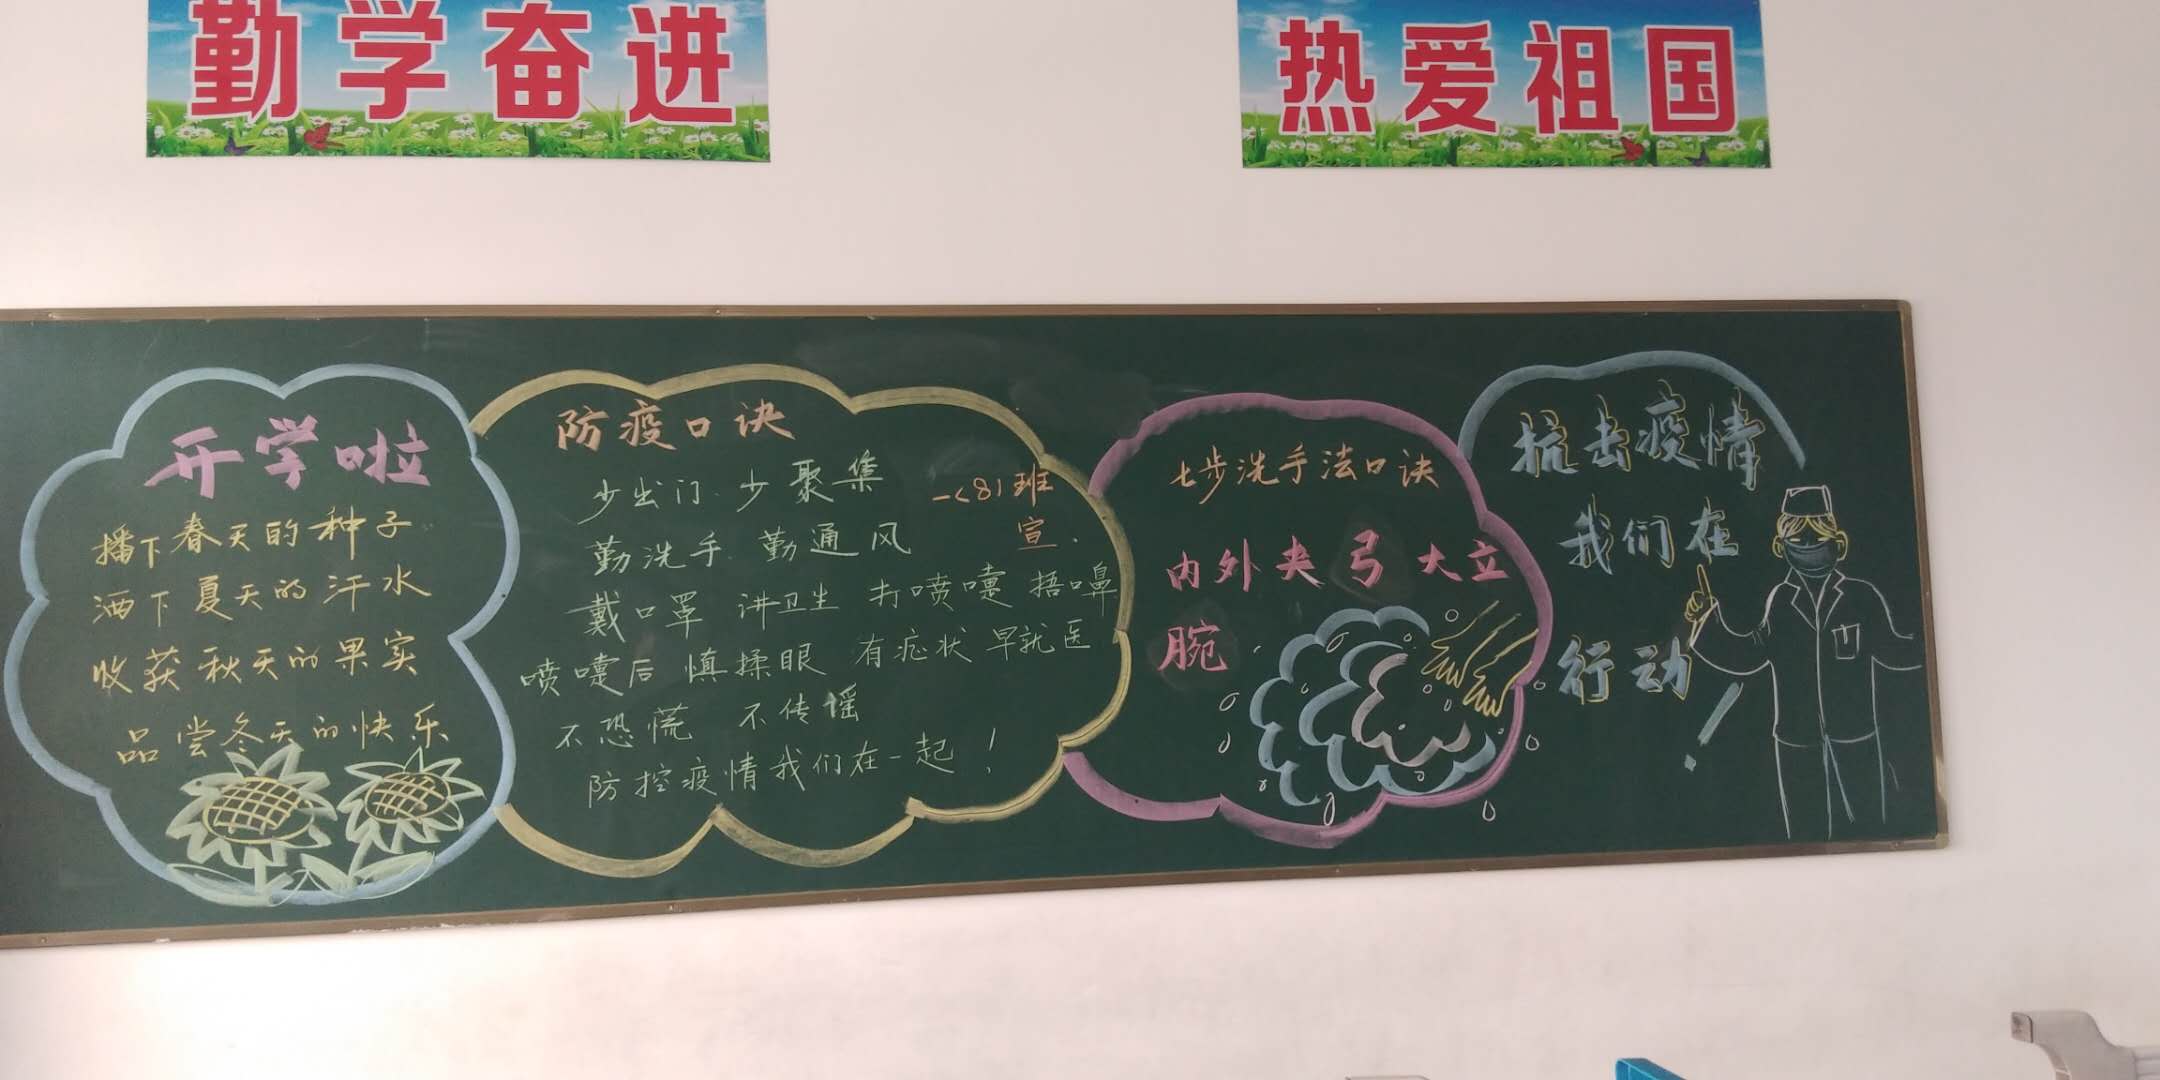 勤学奋进
热爱祖国
开学啦
播下春天的种子
洒下夏天的汗水
收获秋天的果实
品尝冬天的快乐
防疫口诀
少出门 少聚集
勤洗手 勤通风
戴口罩 讲卫生 打喷嚏 捂口鼻
喷嚏后 慎揉眼 有症状 早就医
不恐慌 不传谣
防控疫情我们在一起！
一(8)班
宣
七步洗手法口诀
内外夹弓大立
腕
抗击疫情
我们在
行动！